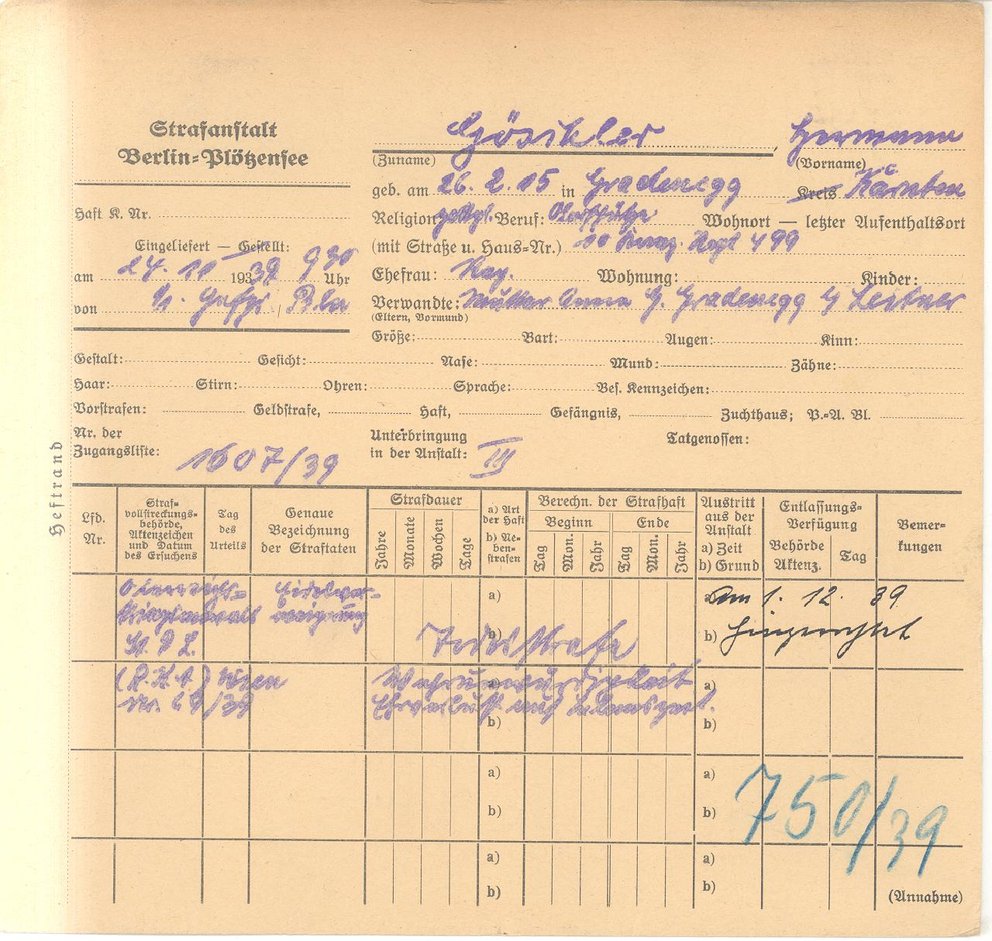 Strafanstalt
Berlin-Plötzensee
Haft K. Nr.
Eingeliefert — Gestellt:
am 24. 10 1939 9 30 Uhr
von
Hermann
(Zuname) (Vorname)
geb. am 26. 2. 15 in Gradenegg Kreis Kärnten
Religion Beruf: Oberschütze Wohnort — letzter Aufenthaltsort
(mit Straße u. Haus-Nr.) Regt 499
Ehefrau: Wohnung: Kinder:
Verwandte: Mutter Anna G. Gradenegg
(Eltern, Vormund)
Größe: Bart: Augen: Kinn:
Gestalt: Gesicht: Nase: Mund: Zähne:
Haar: Stirn: Ohren: Sprache: Bes. Kennzeichen:
Vorstrafen: Geldstrafe, Haft, Gefängnis, Zuchthaus; P.-A. Bl.
Nr. der
Zugangsliste: 1607/39
Unterbringung
in der Anstalt: III
Tatgenossen:
Heftrand
Lfd.
Nr.
Straf-
vollstreckungs-
behörde,
Aktenzeichen
und Datum
des Ersuchens
Tag
des
Urteils
Genaue
Bezeichnung
der Straftaten
Strafdauer
Jahre
Monate
Wochen
Tage
a) Art
der Haft
b) Ne-
ben-
strafen
Berechn. der Strafhaft
Beginn Ende
Tag Mon. Jahr Tag Mon. Jahr
Austritt
aus der
Anstalt
a) Zeit
b) Grund
Entlassungs-
Verfügung
Behörde
Aktenz.
Tag
Bemer-
kungen
a) a) Am 1. 12. 39
b) Todesstrafe b) Hingerichtet
a) Wehrunwürdigkeit a)
b) Ehrverlust auf Lebenszeit. b)
a) a)
b) b)
750/39
a) a)
b) b)
(Annahme)